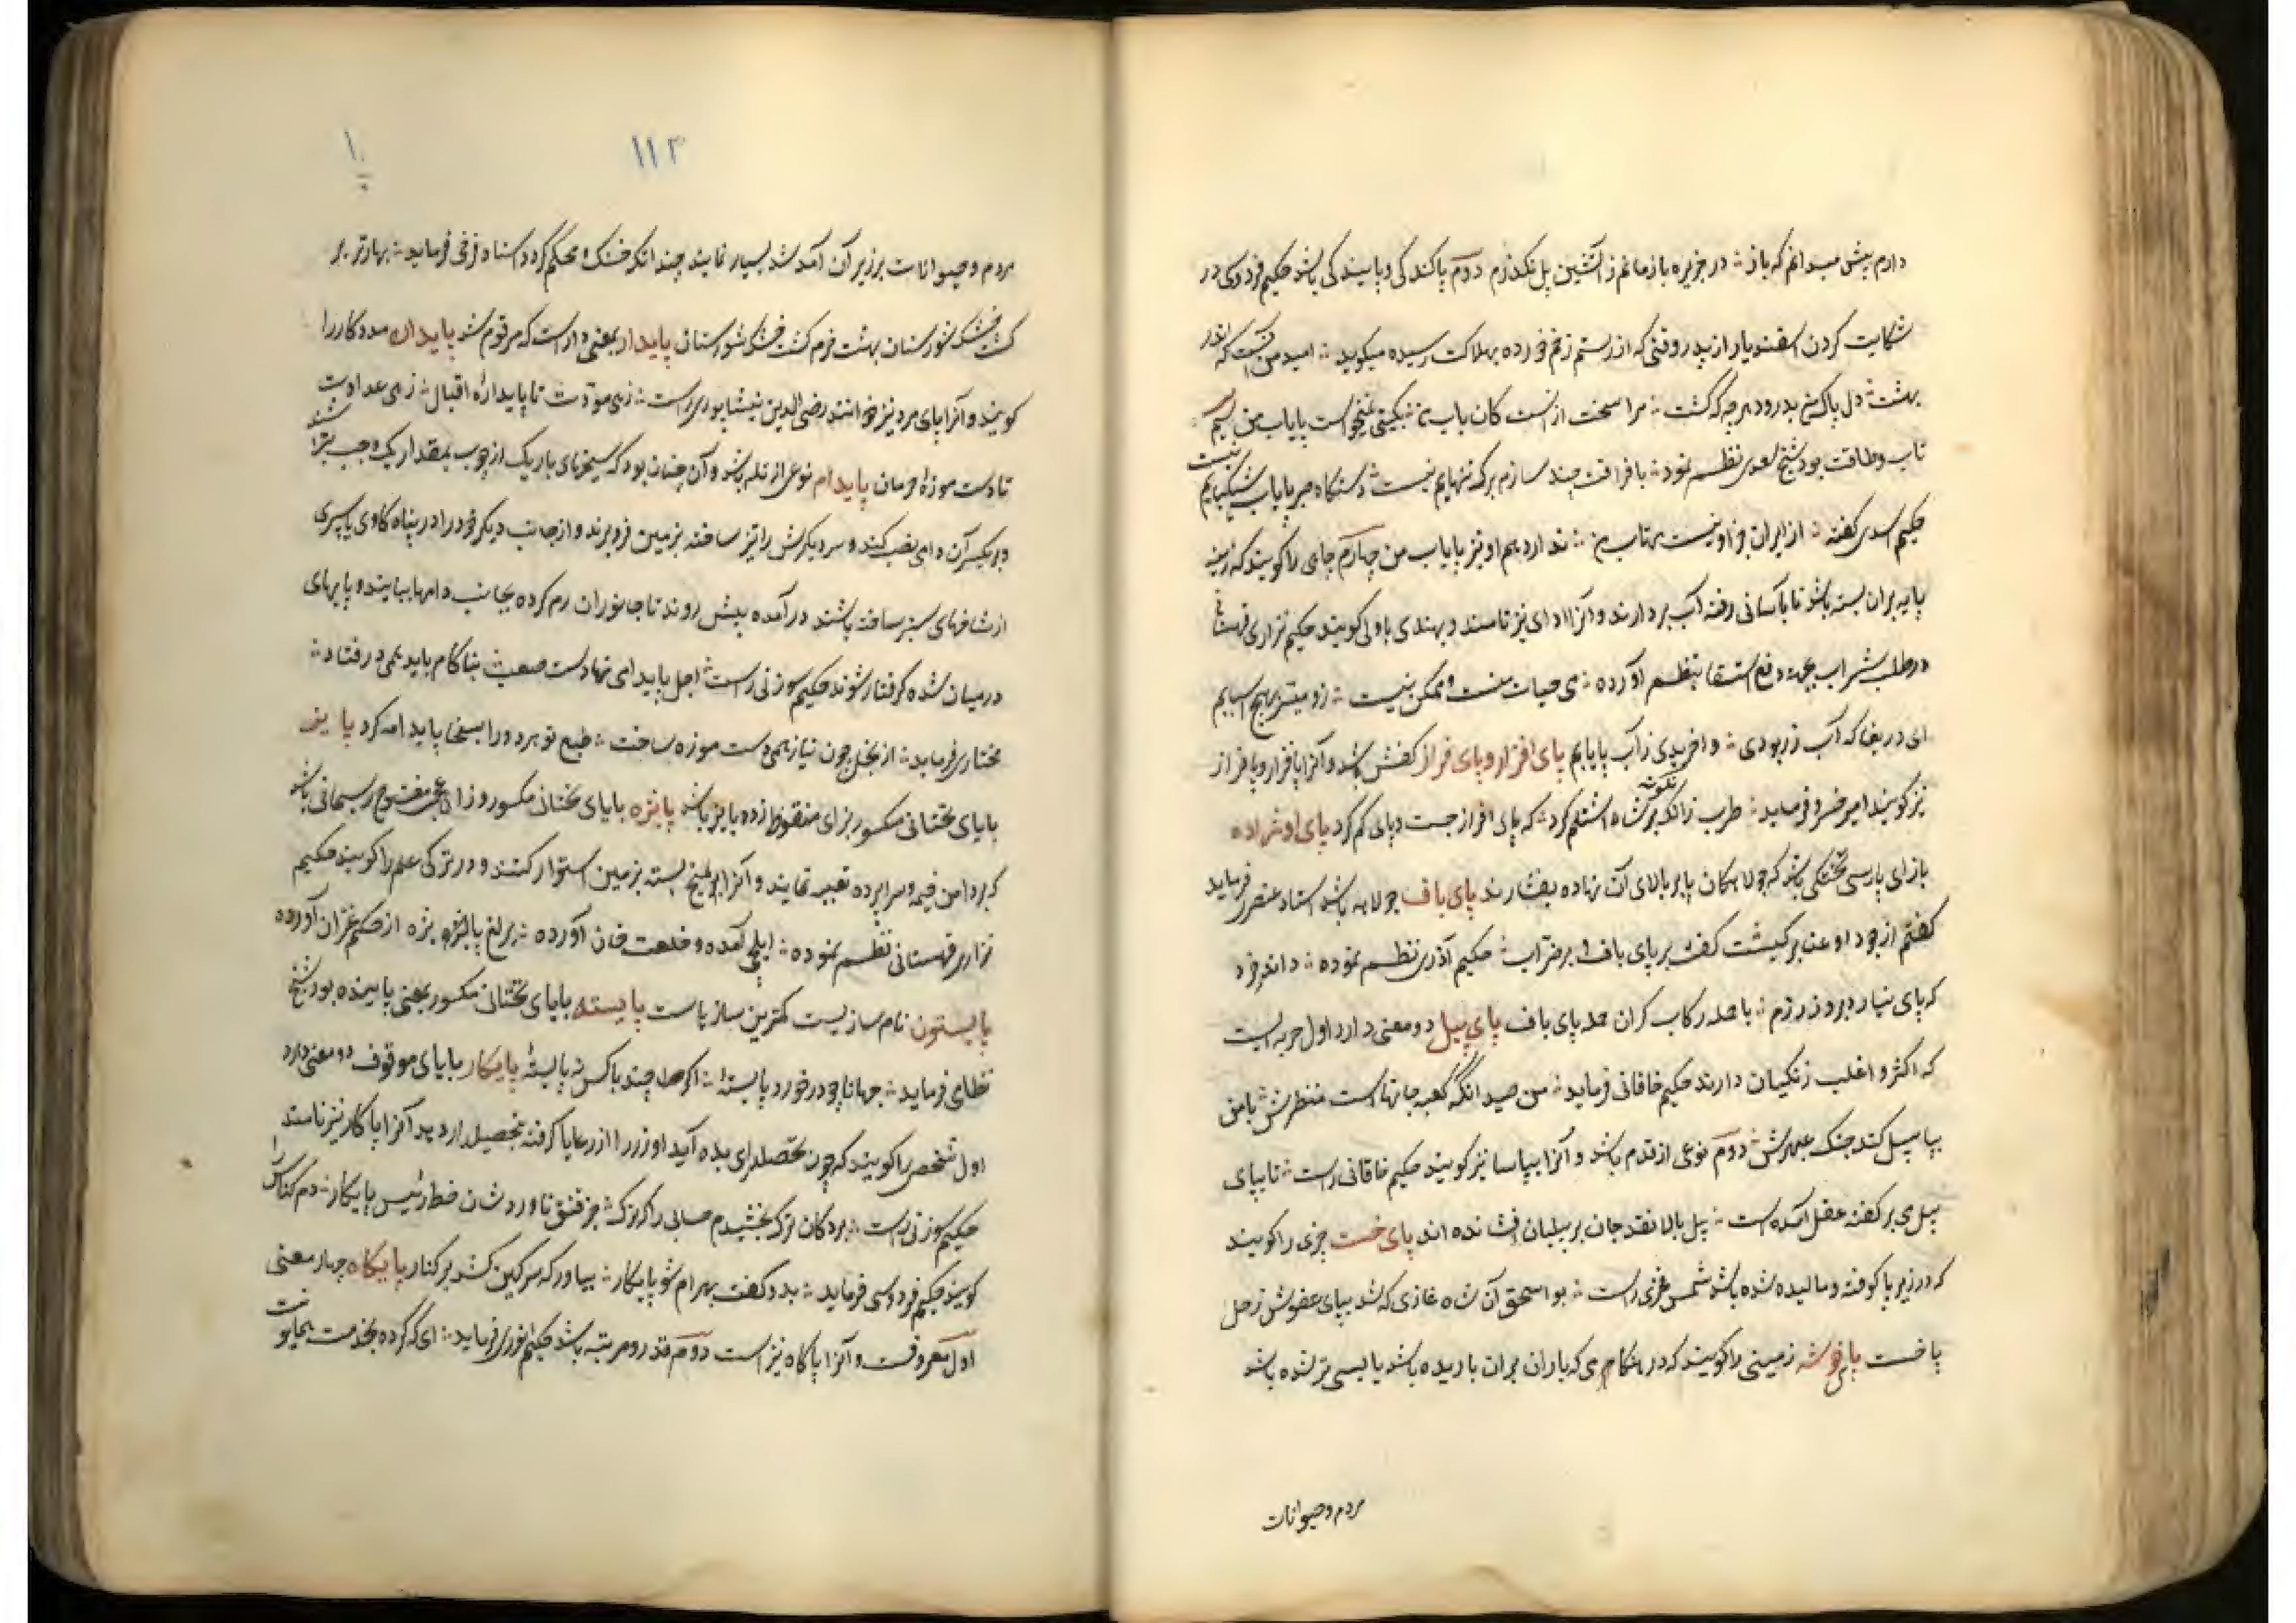 دارم پیش میدانم که باز ؞ در جزیره باز مانم ز آتشین پل نگذرم دوم پاکندگی و پابندگی باشد حکیم فردوسی در
شکایت کردن اسفندیار از پدر وقتی که از رستم زخم خورده بهلاکت رسیده میگوید ؞ امید من آنست که اندر
بهشت ؞ دل پاک من بدرود هرچه که گشت ؞ مرا سخت از آنست کان باب من ؞ بگیتی نمیخواست پایاب من سیم
تاب و طاقت بود شیخ سعدی نظم نمود ؞ با فراقت چند سازم برک تنهایم نیست ؞ دستگاه صبر و پایاب شکیبایم نیست
حکیم اسدی گفته ؞ از ایران جز او نیست همتاب من ؞ ندارد هم او نیز پایاب من چهارم جای را گویند که زینه
پایه بران بسته باشد تا بآسانی رفته آب بردارند و آنرا اوای نیز نامند و بهندی باولی گویند حکیم نزاری قهستانی
در طلب شراب بجهة دفع استسقا بنظم آورده ؞ می حیات منست و ممکن نیست ؞ زو میسر بهیچ اسبابم
ای دریغا که آب زر بودی ؞ واخریدی ز آب پایابم پای افزار و پای فراز کفش باشد و آنرا پافزار و پافراز
نیز گویند امیر خسرو فرماید ؞ طرب زانگونه بر شاه اشتلم کرد ؞ که پای افراز جست و پای گم کرد پای اوشاده
بازای پارسی تختگی باشد که جولاهکان پا بر بالای آن نهاده بفشارند پای باف جولاهه باشد استاد عنصر فرماید
گفتم از جود او عنا برگیشت گفت بر پای باف و بر ضرآب ؞ حکیم آذری نظم نموده ؞ داند خرد
که پای نیارد بروز رزم ؞ با حمله رکاب کران حمله پای باف پای پیل دو معنی دارد اول حربه ایست
که اکثر و اغلب زنگیان دارند حکیم خاقانی فرماید ؞ من صید آنکه کعبه جانهاست منظرش ؞ با من
بپا پیل کند جنک عبهرش ؞ دوم نوعی از قدم باشد و آنرا بیپاسا نیز گویند حکیم خاقانی راست ؞ تا بپای
پیل می بر کعبه عقل آمده است ؞ پیل بالا نقد جان بر پیلبان افشانده اند پای خست چیزی را گویند
که در زیر پا کوفته و مالیده شده باشد شمس فخری راست ؞ بو اسحق آن شاه غازی که شد بپای عفوش زحل
پا خست پای خوشه زمینی را گویند که در هنکامی که باران بران باریده باشد یا بسی تر شده باشد
مردم و حیوانات
۱۱۳
۱۰
مردم و حیوانات بر زبر آن آمد شد بسیار نمایند چند انکه خشک و محکم گردد استاد فرخی فرماید ؞ بهار تر بر
کشت خشک شورستان بهشت خرم کشت خشک شورستان پایدار بمعنی دارست که مرقوم شد پایداره مددکار را
گویند و آنرا پای مرد نیز خوانند رضی الدین نیشاپوری راست ؞ زهی مودت تا پایداره اقبال ؞ زهی عداوت
تا دست موزه حرمان پایدام نوعی از تله باشد و آن چنان بود که سیخهای باریک از چوب بمقدار یک وجب بتراشند
و بر یکسر آن دامی نصب کنند و سر دیگرش را تیز ساخته بزمین فرو برند و از جانب دیگر خود را در پناه کاوی یا سپری
از شاخهای سبز ساخته باشند درآمده پیش روند تا جانوران رم کرده بجانب دامها بیایند و پایهای
در میان شده گرفتار شوند حکیم سوزنی راست ؞ اجل پایدامی نهادست صعب ؞ بناکام باید همی در فتاد ؞
مختاری فرماید ؞ از بخل چون نیاز همی دست موزه ساخت ؞ طبع تو هر دو را بسخا پایدامه کرد پایز
با یای تحتانی مکسور بزای منقوط زده پاییز باشد پایزه با یای تحتانی مکسور و زای عجمی مفتوح ریسمانی باشد
که بر دامن خیمه و سراپرده تعبیه نمایند و آنرا بر میخ بسته بزمین استوار کنند و در ترکی علم را گویند حکیم
نزاری قهستانی نظم نموده ؞ ایلچی آمده و خلعت خان آورده ؞ یرلغ با لتزه یزه از حکم غزان آورده
پایستون نام سازیست کمترین ساز پاست پایسته با یای تحتانی مکسور بمعنی پاینده بود شیخ
نظامی فرماید ؞ جهانا چو در خورد پایسته ؞ اگرچه چند با کس نه پایسته پایکار با یای موقوف دو معنی دارد
اول شخصی را گویند که چون محصلدار بده آید او زر را از رعایا گرفته بتحصیلدار دهد آنرا پاکار نیز نامند
حکیم سوزنی راست ؞ بردکان ترک بخشیدم حسابی را کرک ؞ جز قنق ناوردشان خط رئیس پایکار ؞ دوم کناس را
گویند حکیم فردوسی فرماید ؞ بدو گفت بهرام شو پایکار ؞ بیاور که سرگین کشد بر کنار پایگاه چهار معنی
اول معروفست و آنرا پاگاه نیز است دوم قدر و مرتبه باشد حکیم انوری فرماید ؞ ای که گرده بخدمت همایونت